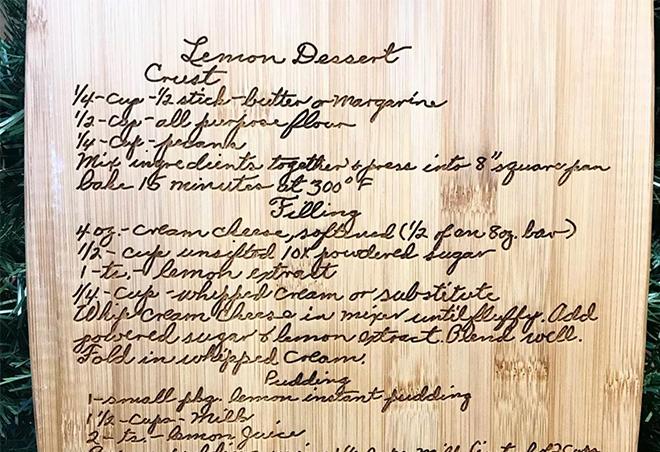 Lemon Dessert
Crust
1/4-cup-1/2 stick-butter or Margarine
1/2-cup-all purpose flour
1/4-cup-pecans
Mix ingredients together & press into 8" square pan
bake 15 minutes at 300°F
Filling
4 oz.-cream cheese, softened (1/2 of an 8oz. bar)
1/2-cup unsifted 10X powdered sugar
1-ts.-lemon extract
1/4-cup-whipped cream or substitute
Whip cream cheese in mixer until fluffy. Add
powered sugar & lemon extract. Blend well.
Fold in whipped cream.
Pudding
1-small pkg. lemon instant pudding
1 1/2-cups-Milk
2-ts.-lemon Juice